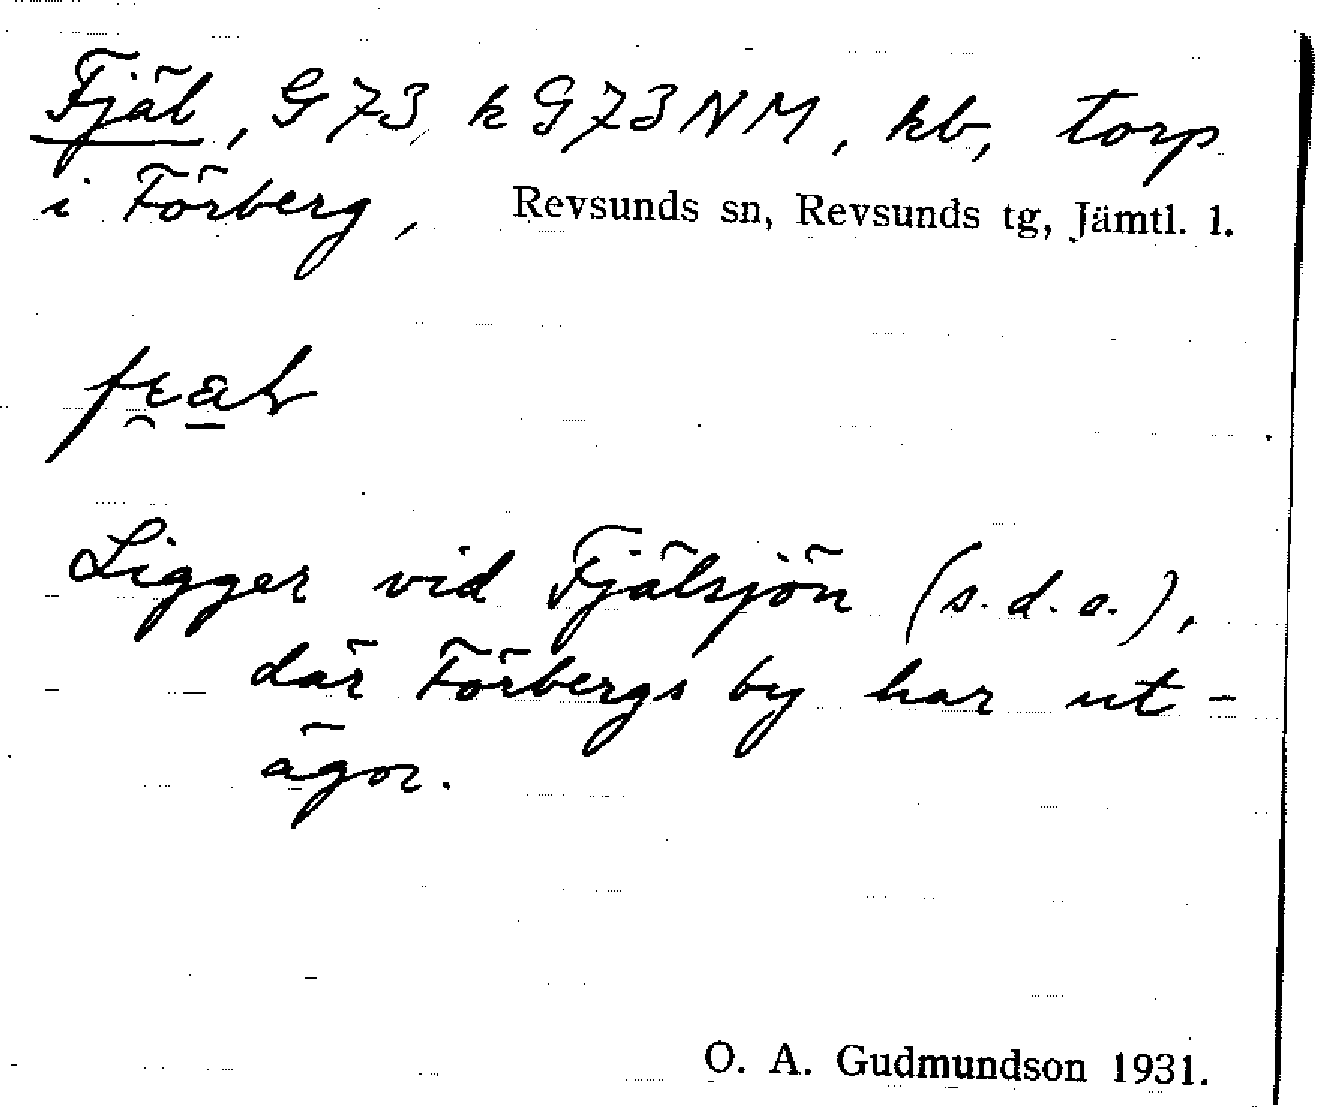 Fjäl, G73, kG73NM, kb, torp
i Förberg, Revsunds sn, Revsunds tg, Jämtl. l.
Ligger vid Fjälsjön (s.d.o.),
där Förbergs by har ut-
ägor.
O. A. Gudmundson 1931.